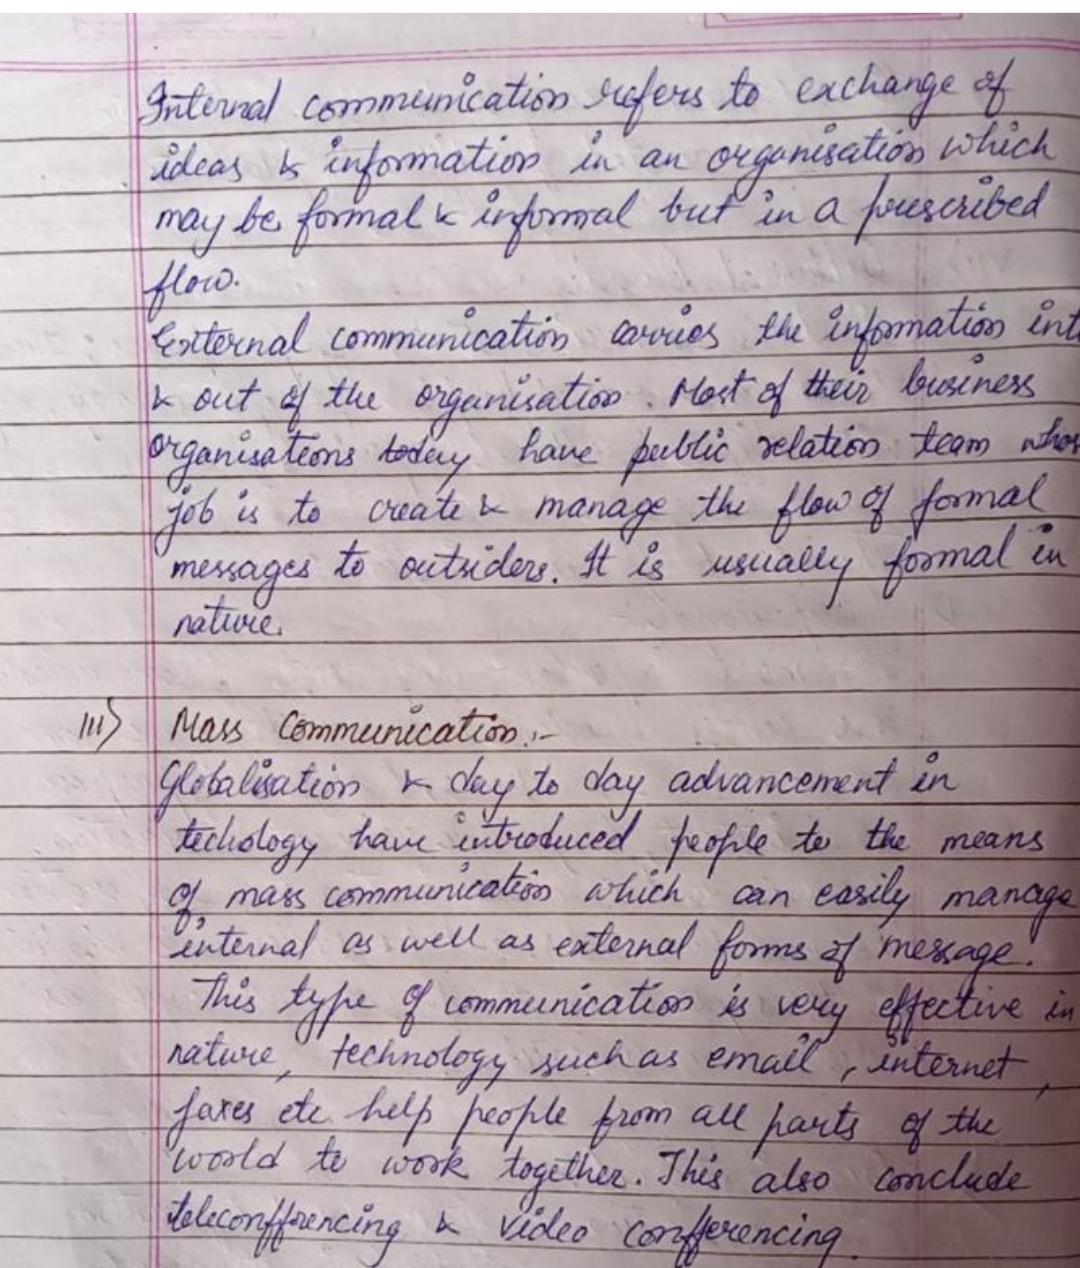 Internal communication refers to exchange of
ideas & information in an organisation which
may be formal & informal but in a prescribed
flow.
External communication carries the information int
& out of the organisation. Most of their business
organisations today have public relation team whos
job is to create & manage the flow of formal
messages to outsiders. It is usually formal in
nature.
III) Mass Communication :-
Globalisation & day to day advancement in
techology have introduced people to the means
of mass communication which can easily manage
internal as well as external forms of message.
This type of communication is very effective in
nature, technology such as email, internet,
faxes etc help people from all parts of the
world to work together. This also conclude
teleconffrencing & video conffrencing.